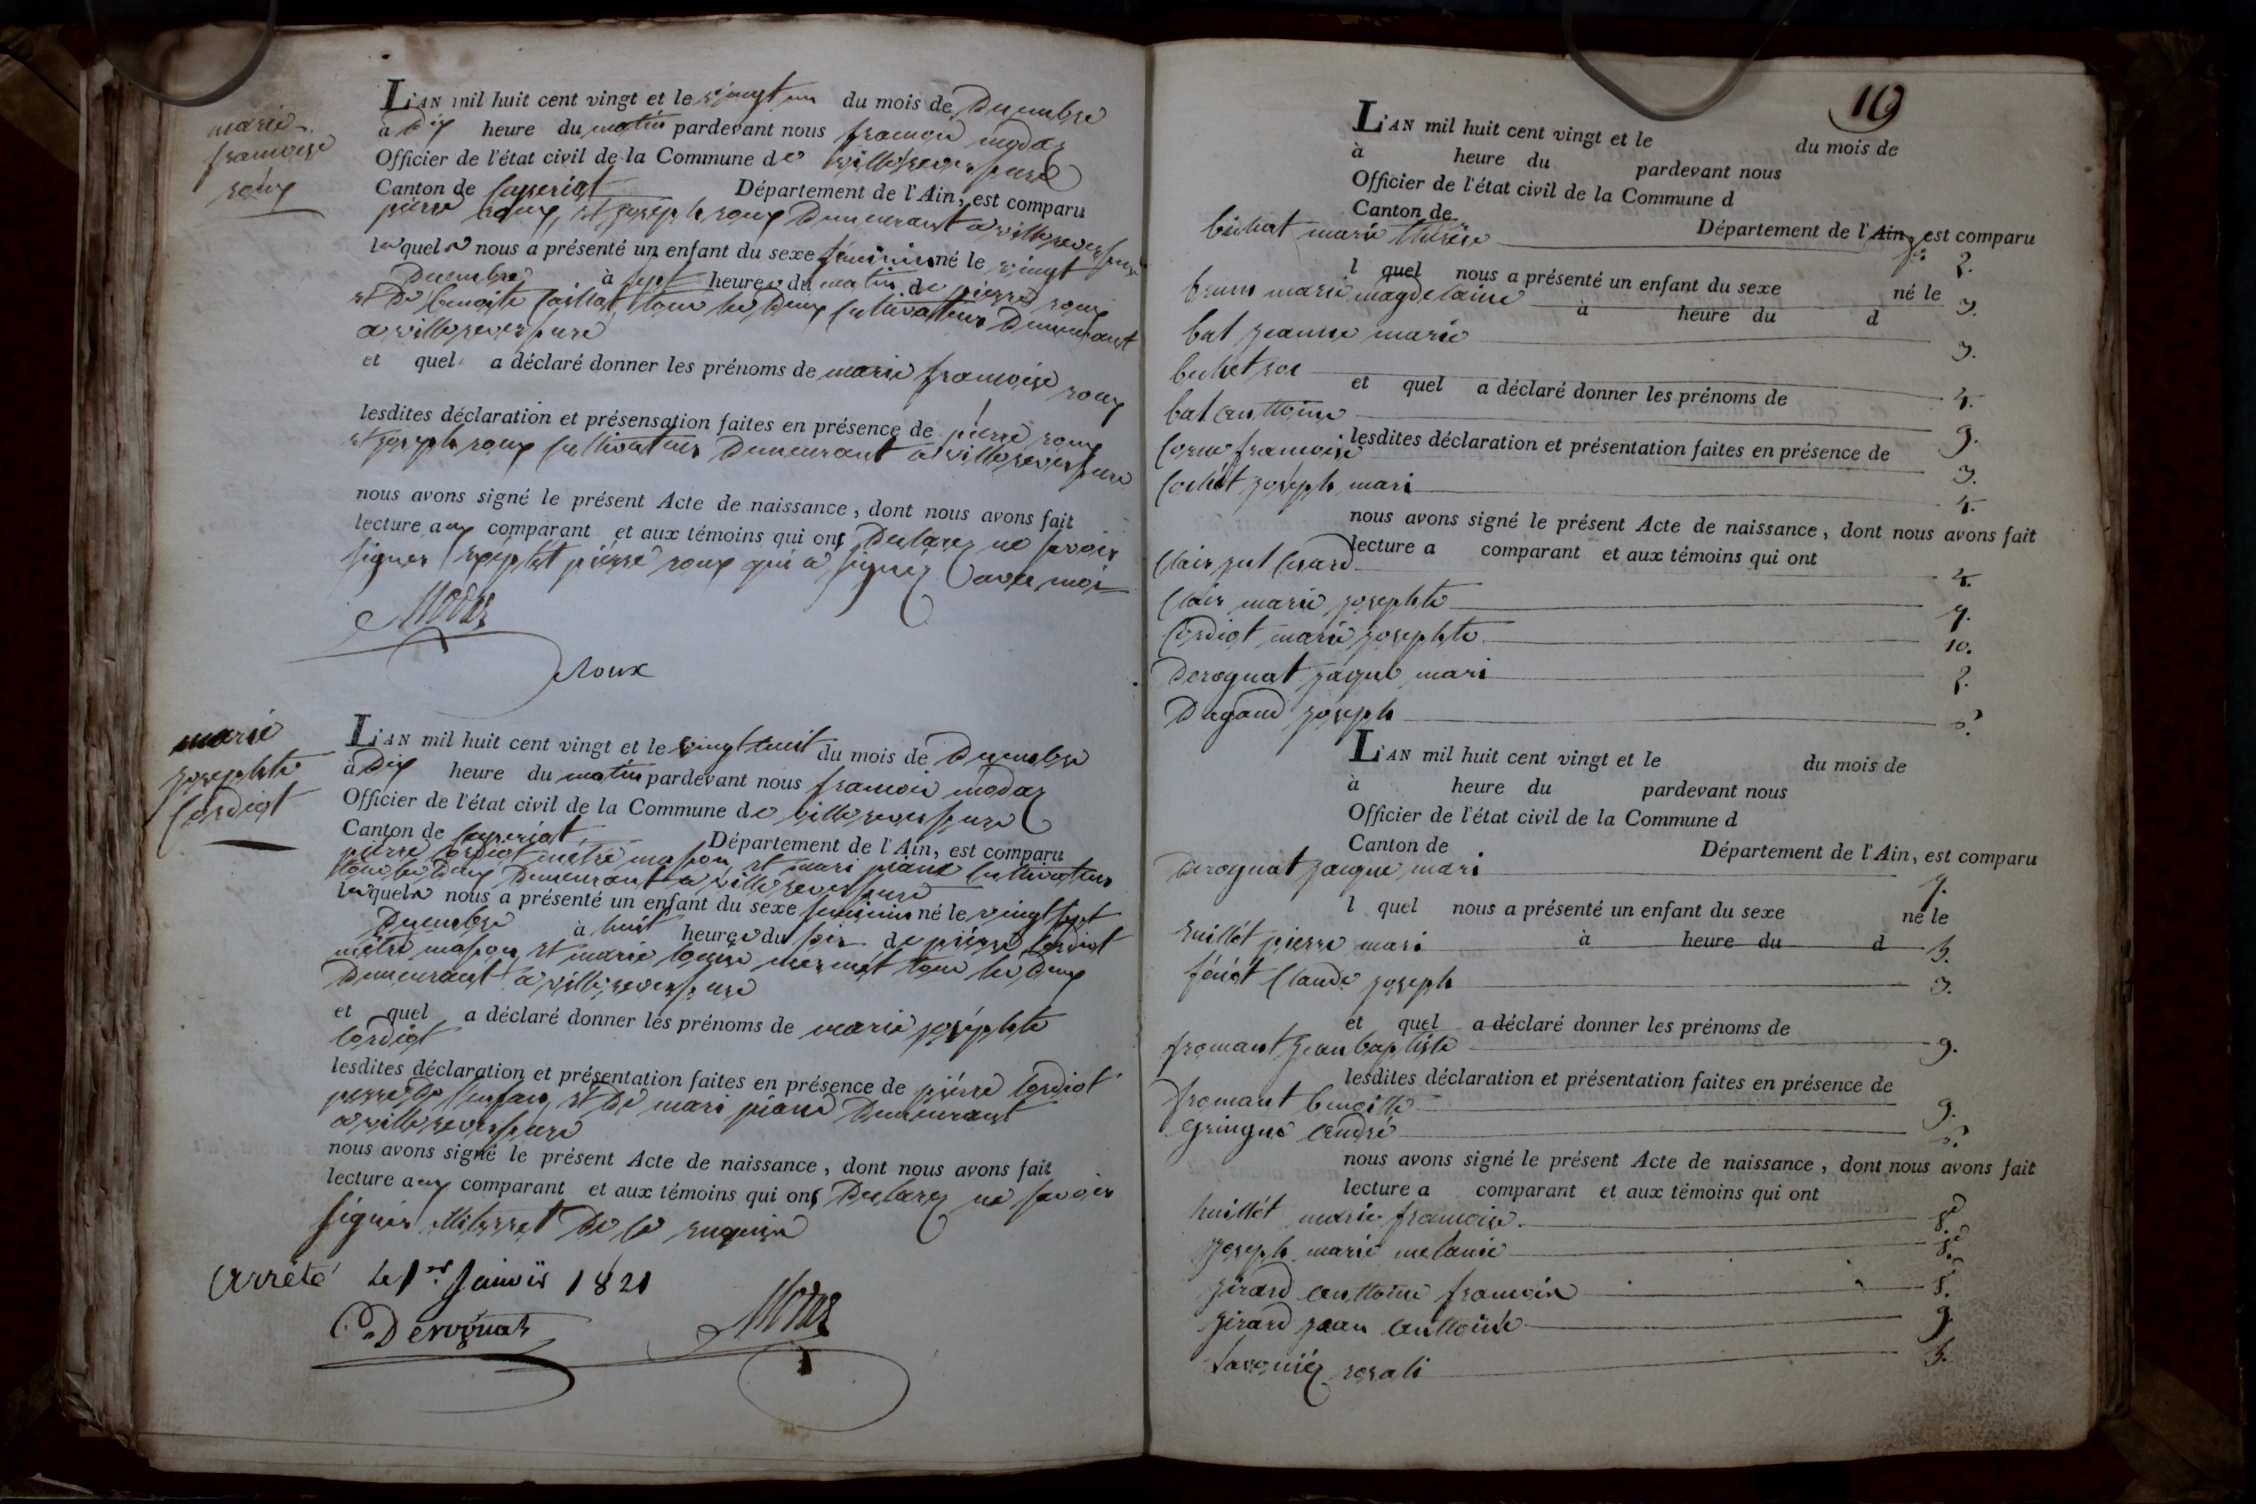 marie
francoise
roux
L'AN mil huit cent vingt et le vingt un du mois de Decembre
à Dix heure du matin pardevant nous francois modas
Officier de l'état civil de la Commune de villereversure
Canton de Ceyseriat Département de l'Ain, est comparu
pierre roux, et joseph roux Demeurant a villereversure
lesquels nous a présenté un enfant du sexe feminin né le vingt
Decembre à sept heures du matin de pierre roux
et De benoite Caillat tous les Deux Cultivateurs Demeurant
a villereversure
et quel a déclaré donner les prénoms de marie francoise roux
lesdites déclaration et présensation faites en présence de pierre roux
et joseph roux Cultivateurs Demeurant a villereversure
nous avons signé le présent Acte de naissance, dont nous avons fait
lecture aux comparant et aux témoins qui ont Declarez ne savoir
signer exepté pierre roux qui a signez avec moi
Modas
Roux
marie
josephte
Cordiot
L'AN mil huit cent vingt et le vingt huit du mois de Decembre
à Dix heure du matin pardevant nous francois modas
Officier de l'état civil de la Commune de villereversure
Canton de Ceyseriat Département de l'Ain, est comparu
pierre Cordiot metre mason, et mari piand Cultivateur
tous les Deux Demeurant a villereversure
lesquels nous a présenté un enfant du sexe feminin né le vingt sept
Decembre à huit heures du soir de pierre Cordiot
metre mason, et marie louise mermet tous les Deux
Demeurant a villereversure
et quel a déclaré donner les prénoms de marie josephte
Cordiot
lesdites déclaration et présentation faites en présence de pierre Cordiot
perre De l'enfant, et De mari piand Demeurant
a villereversure
nous avons signé le présent Acte de naissance, dont nous avons fait
lecture aux comparant et aux témoins qui ont Declarez ne savoir
signer De ce enquis
Arrêté le 1er Janvier 1821
C. Derognat Modas
10
L'AN mil huit cent vingt et le du mois de
à heure du pardevant nous
Officier de l'état civil de la Commune d
Canton de Département de l'Ain, est comparu
bichat marie therese
l quel nous a présenté un enfant du sexe né le
brun marie magdelaine 3.
à heure du d
bal jeanne marie 3.
bechet 4.
et quel a déclaré donner les prénoms de
bal anttoine 9.
lesdites déclaration et présentation faites en présence de
Corne francoise 3.
Cochet joseph mari 4.
nous avons signé le présent Acte de naissance, dont nous avons fait
lecture a comparant et aux témoins qui ont
Clair 4.
Clair marie josephte 7.
Cordiot marie josephte 10.
Derognat jaque mari
Dugand joseph
L'AN mil huit cent vingt et le du mois de
à heure du pardevant nous
Officier de l'état civil de la Commune d
Canton de Département de l'Ain, est comparu
Derognat jacque mari 7.
l quel nous a présenté un enfant du sexe né le
à heure du d
pierre mari 5.
féret Claude joseph 3.
et quel a déclaré donner les prénoms de
fromant jean baptiste 9.
lesdites déclaration et présentation faites en présence de
fromant benoitte 9.
gringue André
nous avons signé le présent Acte de naissance, dont nous avons fait
lecture a comparant et aux témoins qui ont
huillet marie francoise. 8.
joseph marie melanie 8.
girard anttoine francois 8.
girard jean anttoine 9
Savoniez rosali 5.